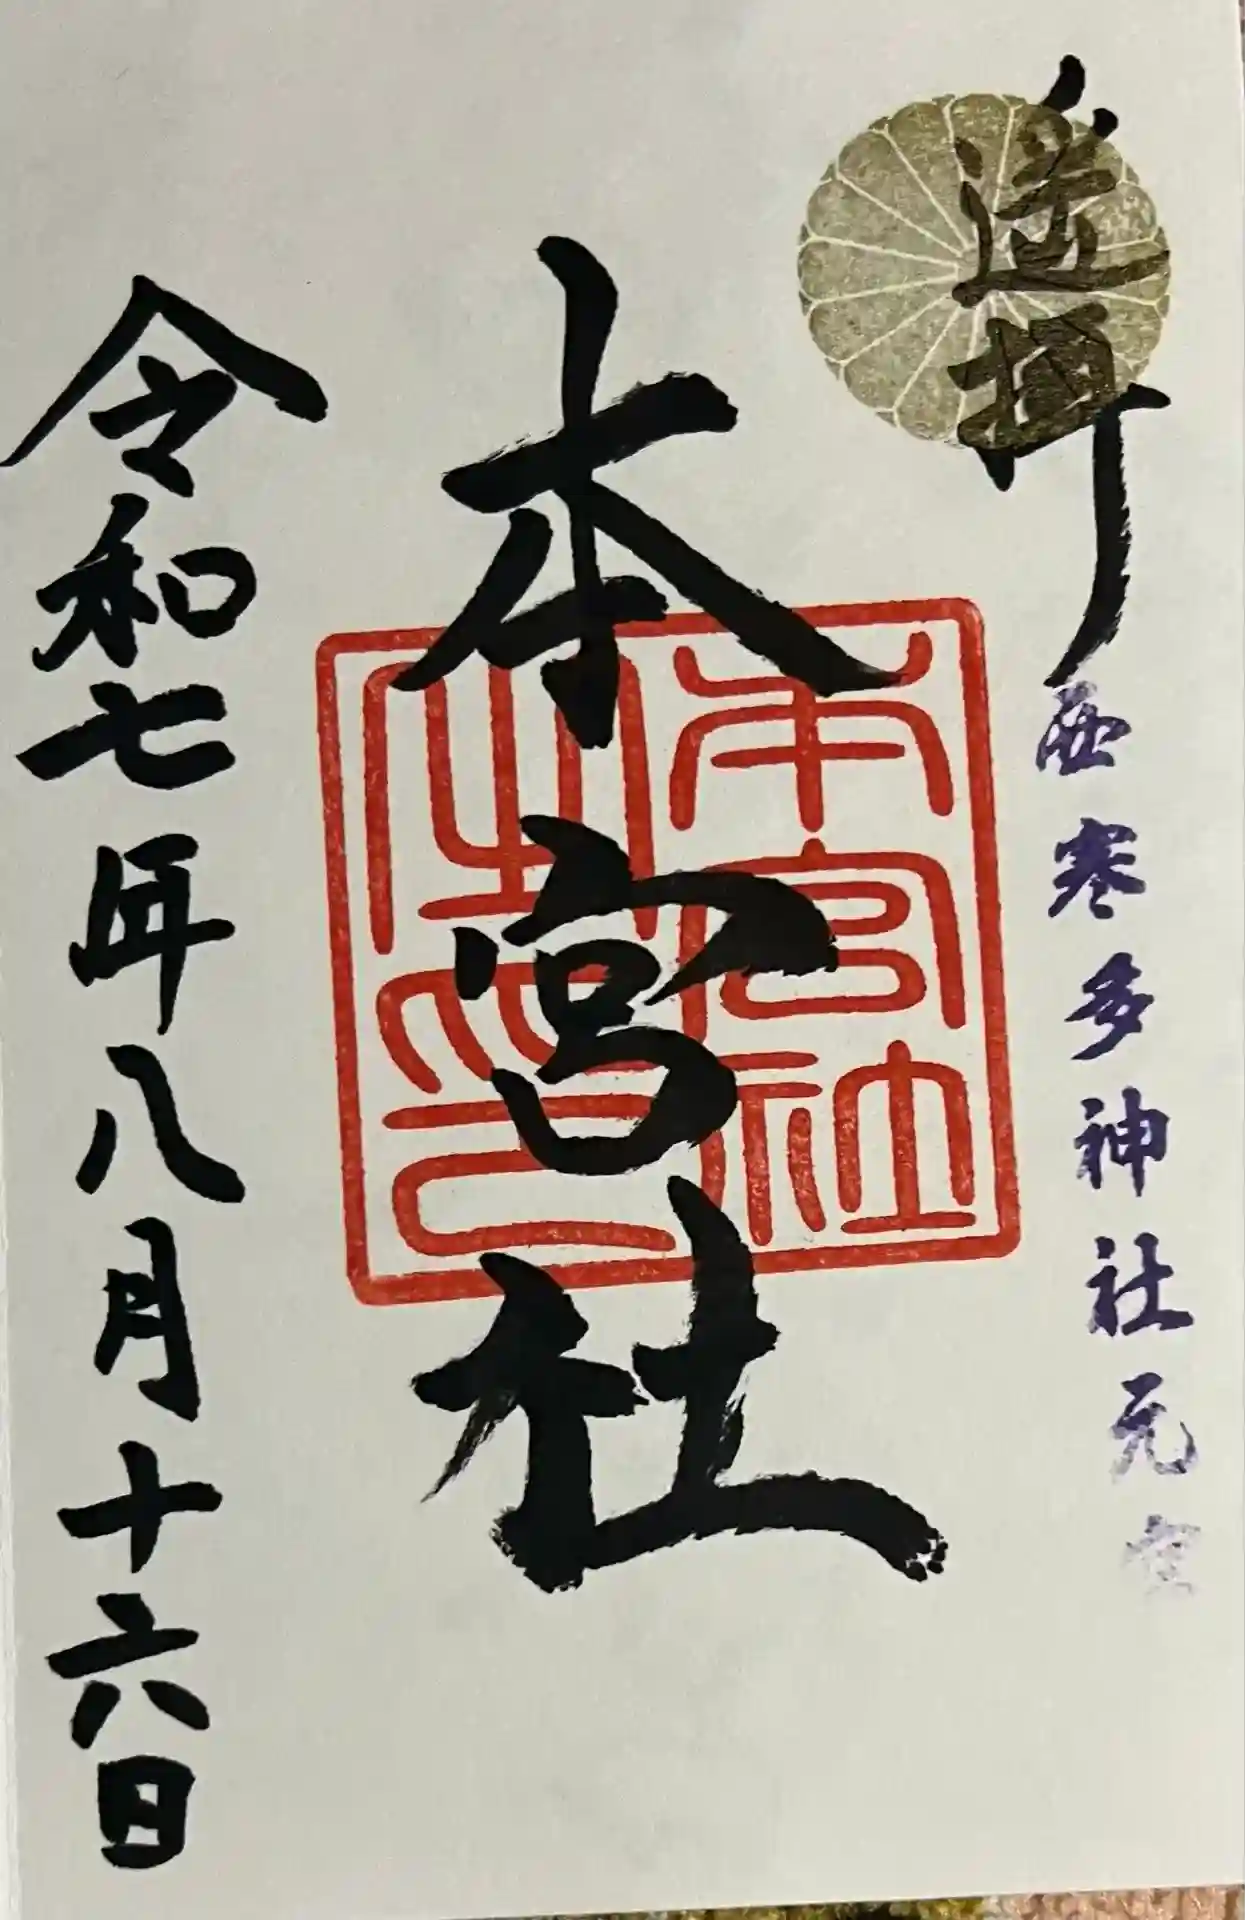 遥拝
西寒多神社元宮
本宮社
本宮社
之印
令和七年八月十六日